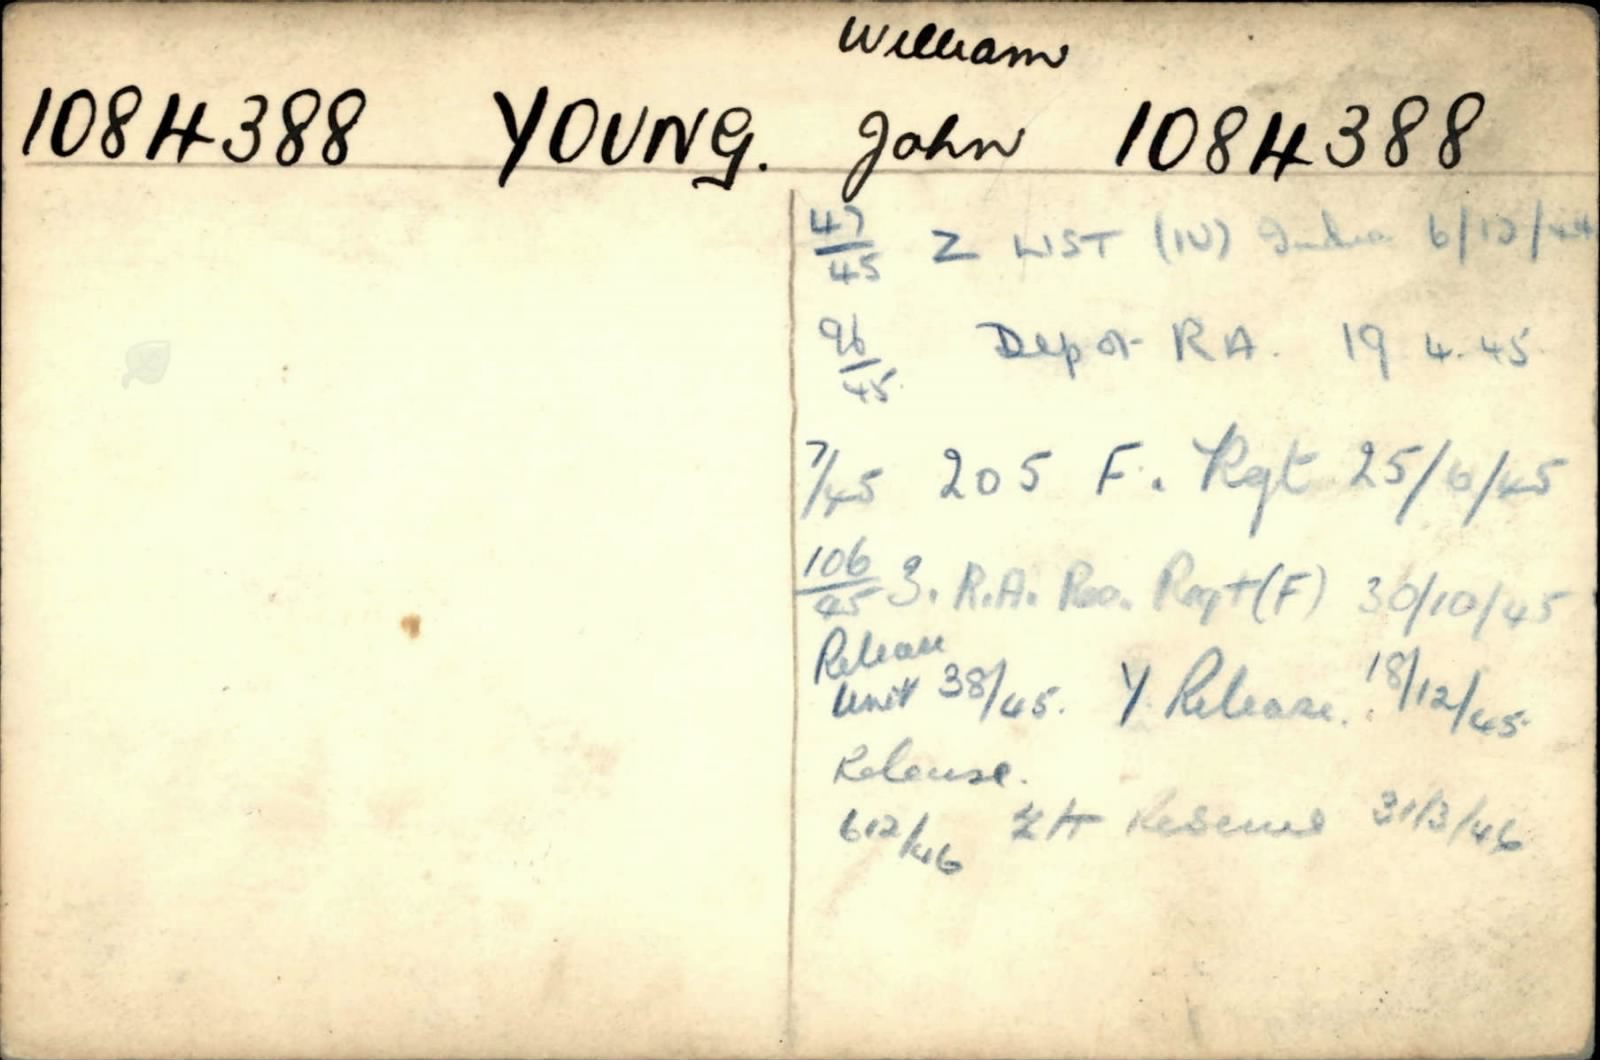 William
1084388 YOUNG. John 1084388
47/45 Z LIST (IV) India 6/12/44
96/45 Depot RA. 19 4.45
7/45 205 F. Rgt 25/6/45
106/45 3. R.A. Res. Regt (F) 30/10/45
Release
Unit 38/45. Y Release. 18/12/45
Release.
612/46 Reserve 31/3/46